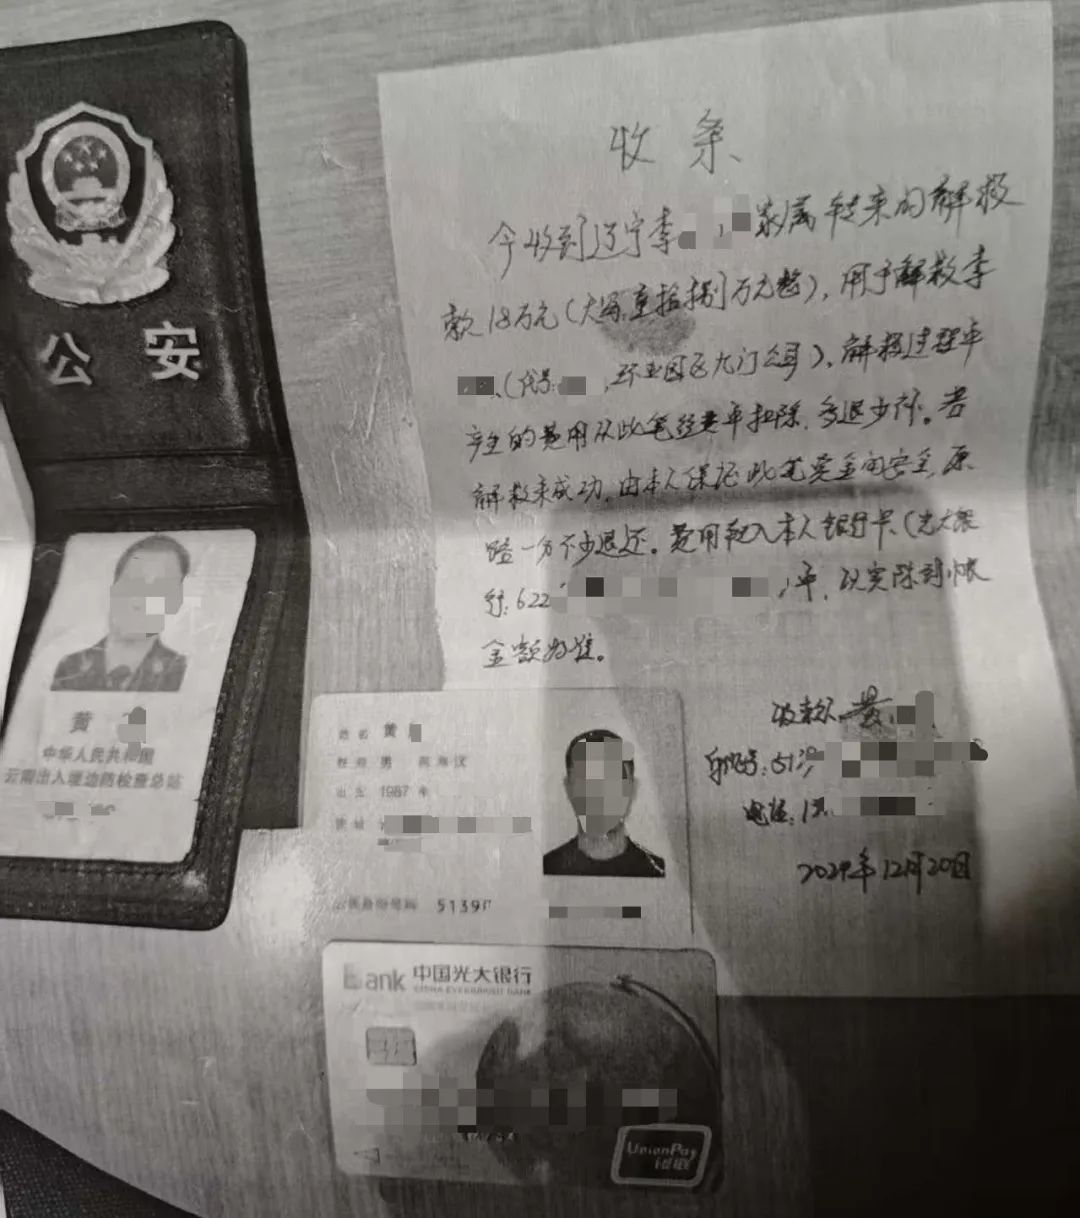 公 安
黄
中华人民共和国
云南出入境边防检查总站
收 条
今收到辽宁李 家属转来的解救
款18万元(大写:壹拾捌万元整),用于解救李
(代号: ,环亚园区九门公司),解救过程中
产生的费用从此笔经费中扣除,多退少补。若
解救未成功,由本人保证此笔资金的安全,原
路一分不少退还。费用转入本人银行卡(光大银
行:622 )中,以实际到帐
金额为准。
收款人:黄
身份证号:513
电话:1
2024年12月20日
姓名 黄
性别 男 民族 汉
出生 1987 年
住址
公民身份号码 5139
Bank 中国光大银行
CHINA EVERBRIGHT BANK
UnionPay
银联